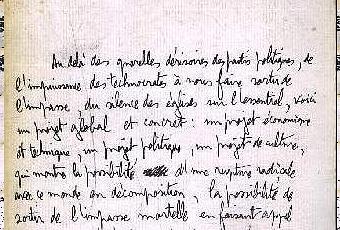 Au delà des querelles dérisoires des partis politiques, de
l'impuissance des technocrates à nous faire sortir de
l'impasse, du silence des églises sur l'essentiel, voici
un projet global et concret : un projet économique
et technique, un projet politique, un projet de culture,
qui montre la possibilité d'une rupture radicale
avec ce monde en décomposition, la possibilité de
sortir de l'impasse mortelle en faisant appel